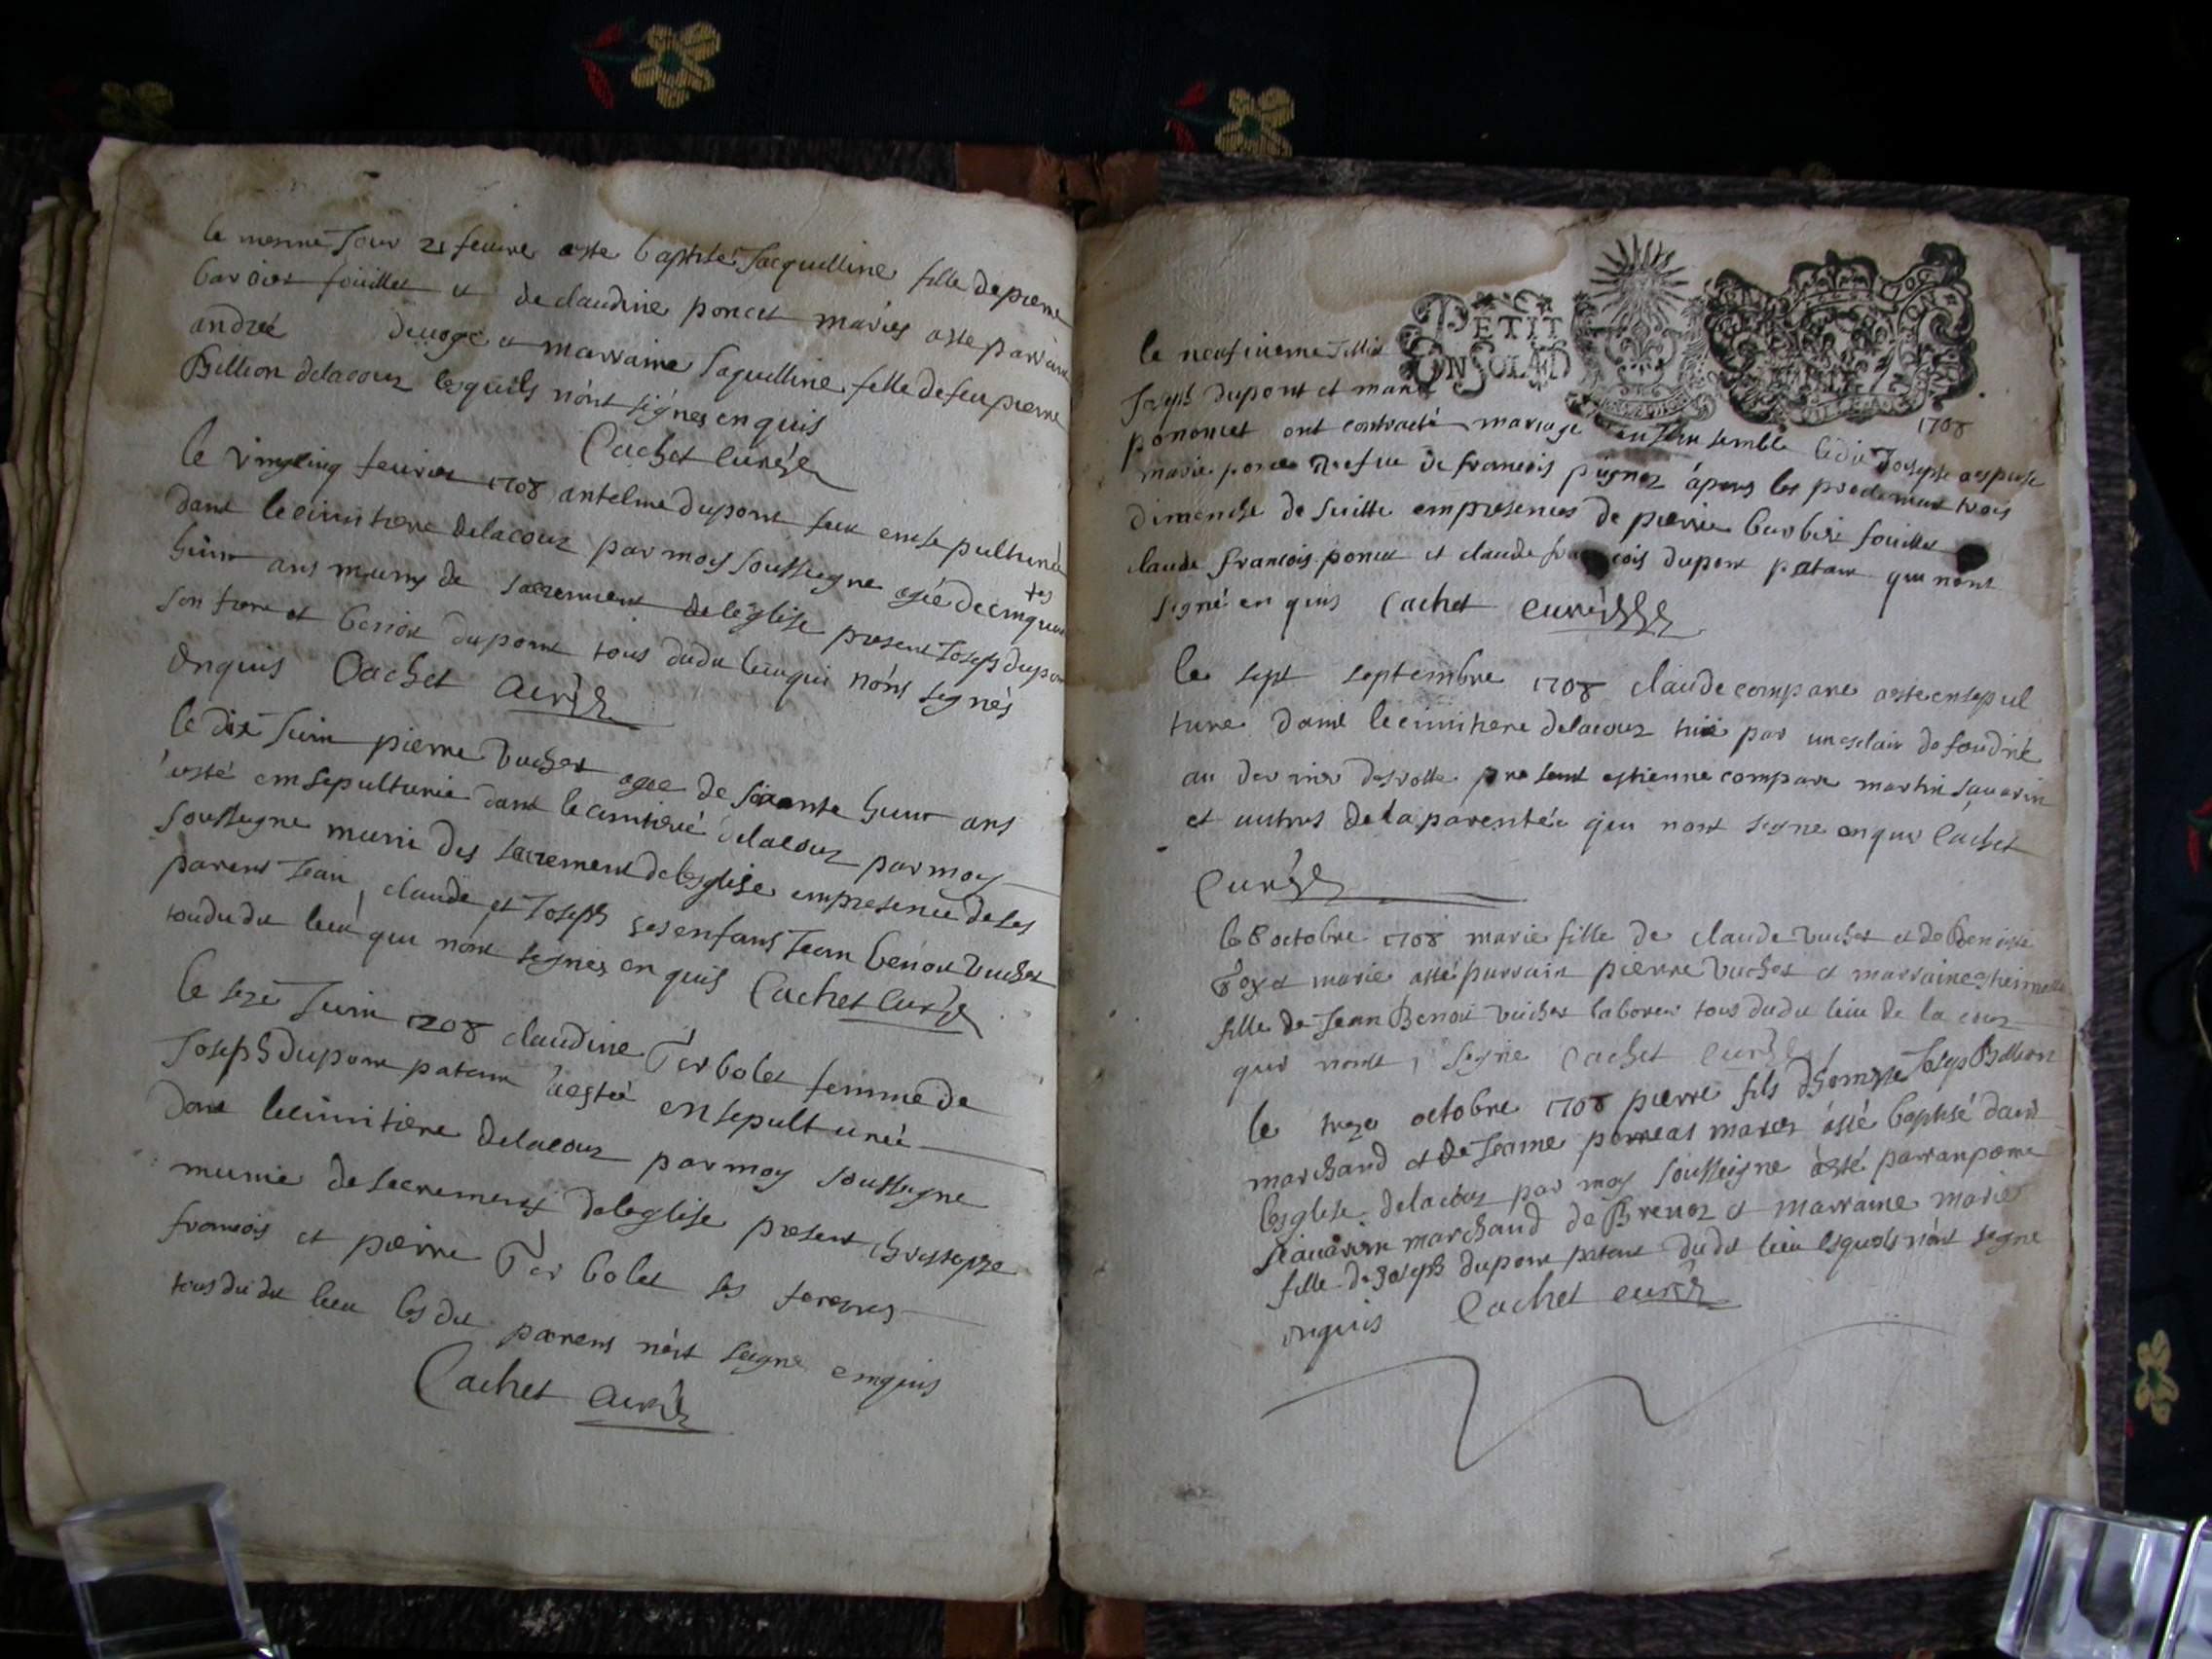 le mesme Jour 21 feuvre aeste baptisée Jacquelline fille de pierre
barbier fouilliet et de claudine poncet mariés aeste parrain
andréé deuoge et marraine Jaquelline fille de feu pierre
Billion delacour lesquels n'ont signés enquis
Cachet Curé
le vingtcinq feuvrier 1708 antelme dupont feut ensepulturé
dant le cimitiere delacour par moy soussigne agée de cinquante
huit ans muny de sacrement de léglise present Joseph dupont
son frere et benoit dupont tous dudit lieu qui n'ont signés
enquis Cachet Curé
le dix Juin pierre Vuchet agée de soixante huit ans
aesté ensepulturée dant le cimitieré delacour par moy
soussigne muni des sacrement de lesglise en presence de ses
parens Jean, claude et Joseph ses enfans Jean benoit Vuchet
toududit lieu qui nont signés enquis Cachet Curé
le seze Juin 1708 claudine Terbolet femme de
Joseph dupont pataut aesté ensepulturéé
dant le cimitiere delacour par moy soussigne
munie de sacrements de leglise present christophe
francois et pierre Terbolet ses freres
tous dudit lieu lesdit parens n'ont signé enquis
Cachet Curé
PETIT
EN SOLAD
1708
le neufvieme Jullie
Joseph dupont et marie
poncet ont contracté mariage ensemble ledit Joseph aespuse
marie poncet vefue de francois puignez apres les proclamat trois
dimenche de suitte empresences de pierre barbier fouillet
claude francois poncet et claude francois dupont pataut qui nont
signé enquis Cachet Curé
le sept septembre 1708 claude compare aeste ensepul
ture dant le cimitiere delacour tué par un esclair de foudre
au dernier present estienne compare martin sauarin
et autres de la parentée qui nont signe enquis Cachet
Curé
le 8 octobre 1708 marie fille de claude Vuchet et de Benoiste
marie aesté parrain pierre Vuchet et marraine
fille de Jean Benoit Vuchet laboreur tous dudit lieu de la cour
qui nont signe Cachet Curé
le treze octobre 1708 pierre fils dhomme Joseph Billion
marchand et de Jeanne perreas mariés aesté baptisé dant
lesglise delacour par moy soussigne aesté parran pierre
sauarin marchand de Brenoz et marraine marie
fille de Joseph dupont pataut dudit lieu lesquels n'ont signe
enquis Cachet Curé